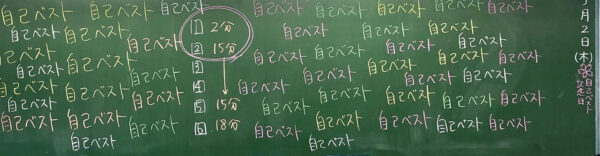 自己ベスト 自己ベスト 自己ベスト 自己ベスト 1 2分 自己ベスト 自己ベスト 自己ベスト 自己ベスト 自己ベスト
自己ベスト 自己ベスト 自己ベスト 2 15分 自己ベスト 自己ベスト 自己ベスト 自己ベスト 自己ベスト
自己ベスト 自己ベスト 自己ベスト 自己ベスト 自己ベスト 自己ベスト 自己ベスト 自己ベスト
自己ベスト 自己ベスト 自己ベスト 4 自己ベスト 自己ベスト 自己ベスト 自己ベスト 自己ベスト
自己ベスト 自己ベスト 自己ベスト 5 15分 自己ベスト 自己ベスト 自己ベスト 自己ベスト 自己ベスト
自己ベスト 自己ベスト 自己ベスト 6 18分 自己ベスト 自己ベスト 自己ベスト 自己ベスト 自己ベスト
自己ベスト 自己ベスト
月2日(木)
自己ベスト
記念日